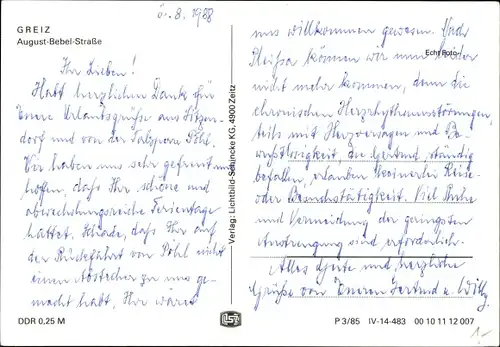 GREIZ
August-Bebel-Straße
6.8.1988
Ihr Lieben!
Habt herzlichen Dank für
Eure Urlaubsgrüße aus Sitzen-
dorf und von der Talsperre Pöhl.
Wir haben uns sehr gefreut und
hoffen, daß Ihr schöne und
abwechslungsreiche Ferientage
hattet. Schade, daß Ihr auf
der Rückfahrt von Pöhl nicht
einen Abstecher zu uns ge-
macht habt. Ihr wäret
DDR 0,25 M
Verlag: Lichtbild-Schincke KG, 4900 Zeitz
uns willkommen gewesen. Nach
können wir nun
Echt Foto
nicht mehr kommen, denn die
chronischen Herzrhythmusstörungen,
teils mit Herzversagen und Be-
wußtlosigkeit, die Gertrud ständig
befallen, erlauben keinerlei Reise-
oder Besuchstätigkeit. Viel Ruhe
und Vermeidung der geringsten
Anstrengung sind erforderlich.
Alles Gute und herzliche
Grüße von Euren Gertrud u. Willy
P 3/85 IV-14-483 00 10 11 12 007